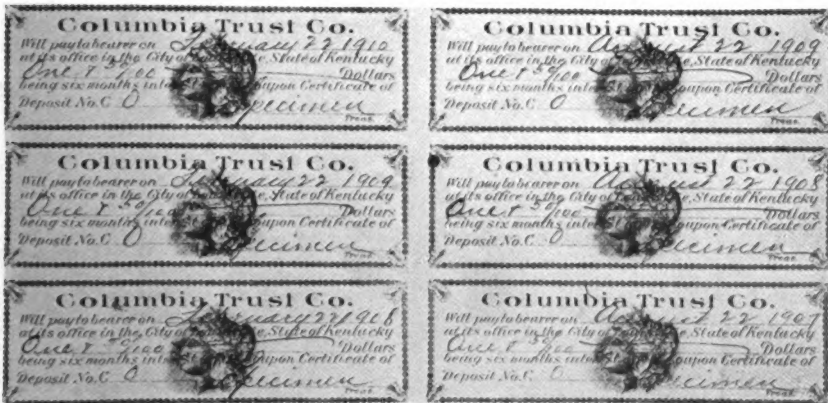 Columbia Trust Co.
Will pay to bearer on February 22 1910
at its office in the City of e, State of Kentucky
One & 50/100 Dollars
being six months inte Coupon Certificate of
Deposit No. C 0 Specimen
Treas.
Columbia Trust Co.
Will pay to bearer on August 22 1909
at its office in the City of e, State of Kentucky
One & 50/100 Dollars
being six months inte Coupon Certificate of
Deposit No. C 0 Specimen
Treas.
Columbia Trust Co.
Will pay to bearer on February 22 1909
at its office in the City of e, State of Kentucky
One & 50/100 Dollars
being six months inte Coupon Certificate of
Deposit No. C 0 Specimen
Treas.
Columbia Trust Co.
Will pay to bearer on August 22 1908
at its office in the City of e, State of Kentucky
One & 50/100 Dollars
being six months inte Coupon Certificate of
Deposit No. C 0 Specimen
Treas.
Columbia Trust Co.
Will pay to bearer on February 22 1908
at its office in the City of e, State of Kentucky
One & 50/100 Dollars
being six months inte Coupon Certificate of
Deposit No. C 0 Specimen
Treas.
Columbia Trust Co.
Will pay to bearer on August 22 1907
at its office in the City of e, State of Kentucky
One & 50/100 Dollars
being six months inte Coupon Certificate of
Deposit No. C 0 Specimen
Treas.